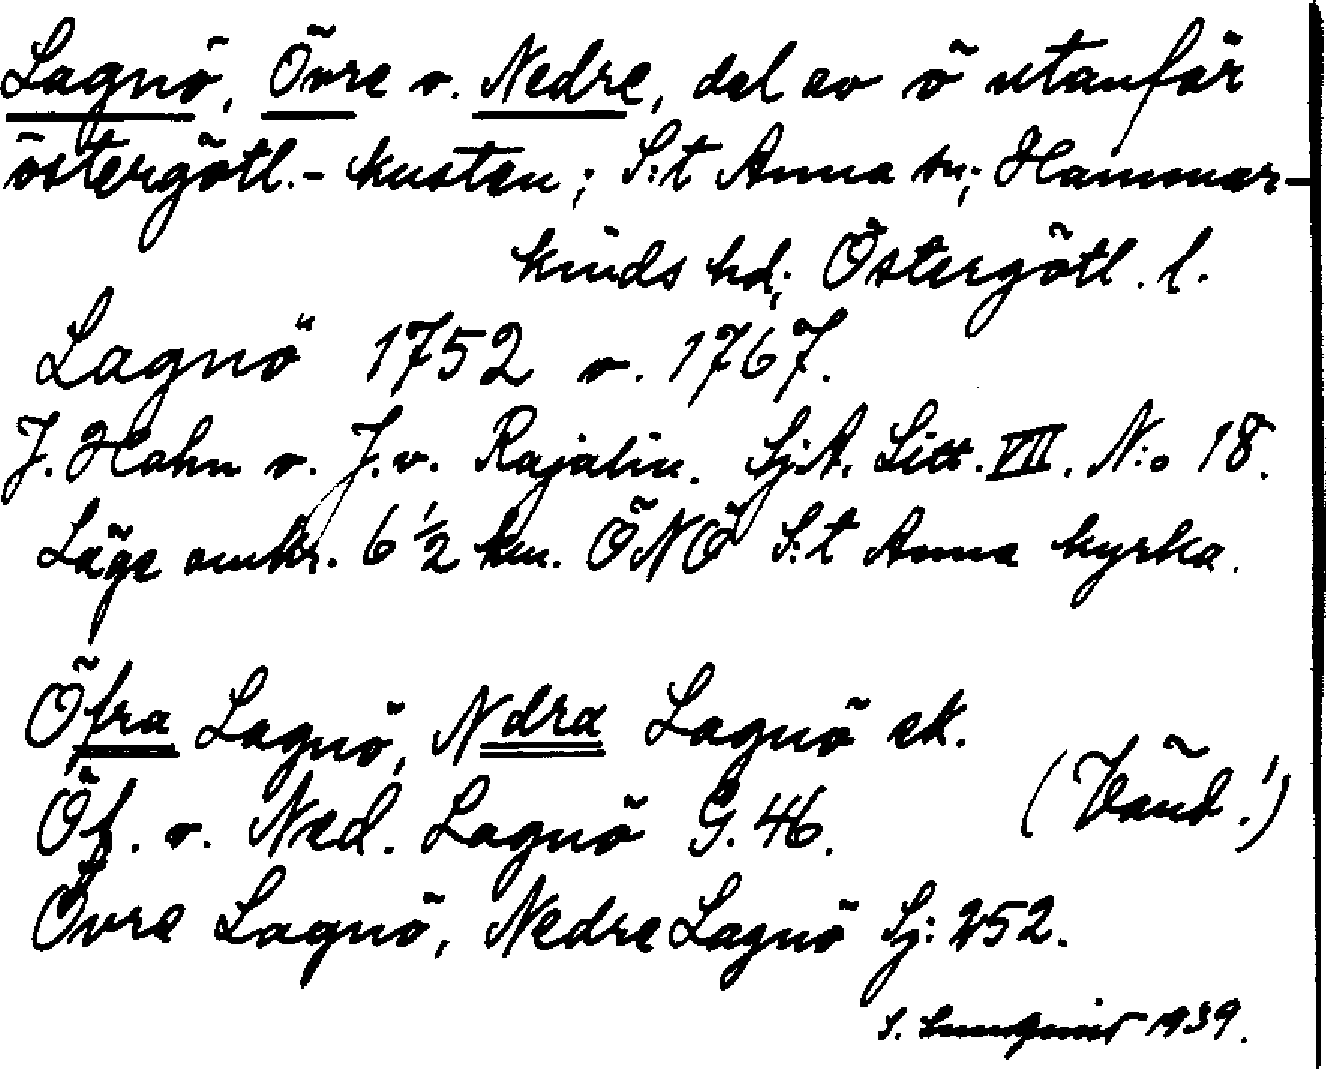 Lagnö, Övre o. Nedre, del av ö utanför
östergötl.- kusten; S:t Anna sn; Hammar-
kinds hd; Östergötl. l.
Lagnö 1752 o. 1767.
J. Hahn o. J. v. Rajalin. Sj.A. Litt. VII. N:o 18.
Läge omkr. 6 1/2 km. ÖNÖ S:t Anna kyrka.
Öfra Lagnö, Ndra Lagnö ek.
Öf. o. Ned. Lagnö G. 46.
(Vänd!)
Övre Lagnö, Nedre Lagnö Sj: 252.
S. 1939.